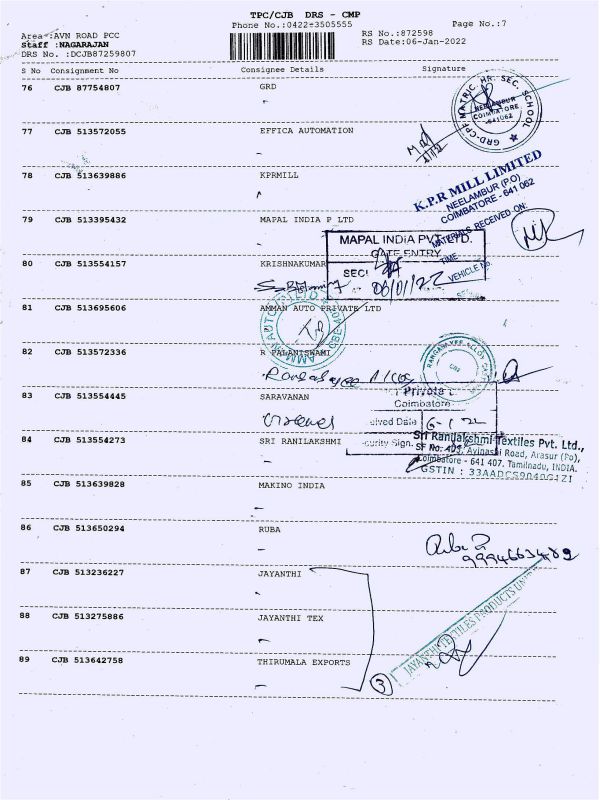 TPC/CJB DRS - CMP
Phone No.:0422-3505555
Page No.:7
Area :AVN ROAD PCC
RS No.:872598
Staff :NAGARAJAN
RS Date:06-Jan-2022
DRS No. :DCJB87259807
S No Consignment No Consignee Details Signature
76 CJB 87754807 GRD
GRD-CPF MATRIC. HR. SEC. SCHOOL
NEELAMBUR
COIMBATORE
641062
77 CJB 513572055 EFFICA AUTOMATION
78 CJB 513639886 KPRMILL
K.P.R MILL LIMITED
NEELAMBUR (P.O)
COIMBATORE - 641 062
MATERIALS RECEIVED ON:
TIME
VEHICLE No.
79 CJB 513395432 MAPAL INDIA P LTD
MAPAL INDIA PVT. LTD.
GATE ENTRY
SECI
06/01/22
80 CJB 513554157 KRISHNAKUMAR
81 CJB 513695606 AMMAN AUTO PRIVATE LTD
82 CJB 513572336 R PALANISWAMI
83 CJB 513554445 SARAVANAN
Private
Coimbatore
eived Date 6-1-22
curity Sign.
84 CJB 513554273 SRI RANILAKSHMI
Sri Ranilakshmi Textiles Pvt. Ltd.,
SF No. 405, Avinashi Road, Arasur (Po),
Coimbatore - 641 407. Tamilnadu, INDIA.
GSTIN :
85 CJB 513639828 MAKINO INDIA
86 CJB 513650294 RUBA
87 CJB 513236227 JAYANTHI
88 CJB 513275886 JAYANTHI TEX
JAYANTHI TEXTILES PRODUCTS UNIT
89 CJB 513642758 THIRUMALA EXPORTS
3